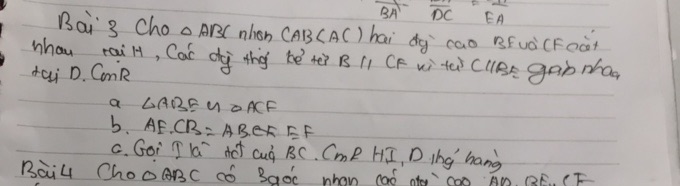 BA DC EA
Bài 3 Cho △ ABC nhọn (AB<AC) hai đg cao BE và CF cắt
nhau tại H, Các đg thg kẻ từ B // CF và từ C // BE gặp nhau
tại D. CmR
a △ABE ∽ △ACF
b. AE.CB = AB EF
c. Gọi I là đ cuả BC. CmR HI, D thg hàng
Bài 4 Cho △ABC có 3 góc nhọn các đg cao AD, BE, CF